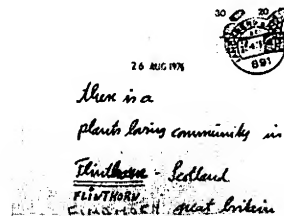 30 20
891
26 AUG 1976
there is a
plants loving community in
Flinthorn - Scotland
FLINTHORN
great britain